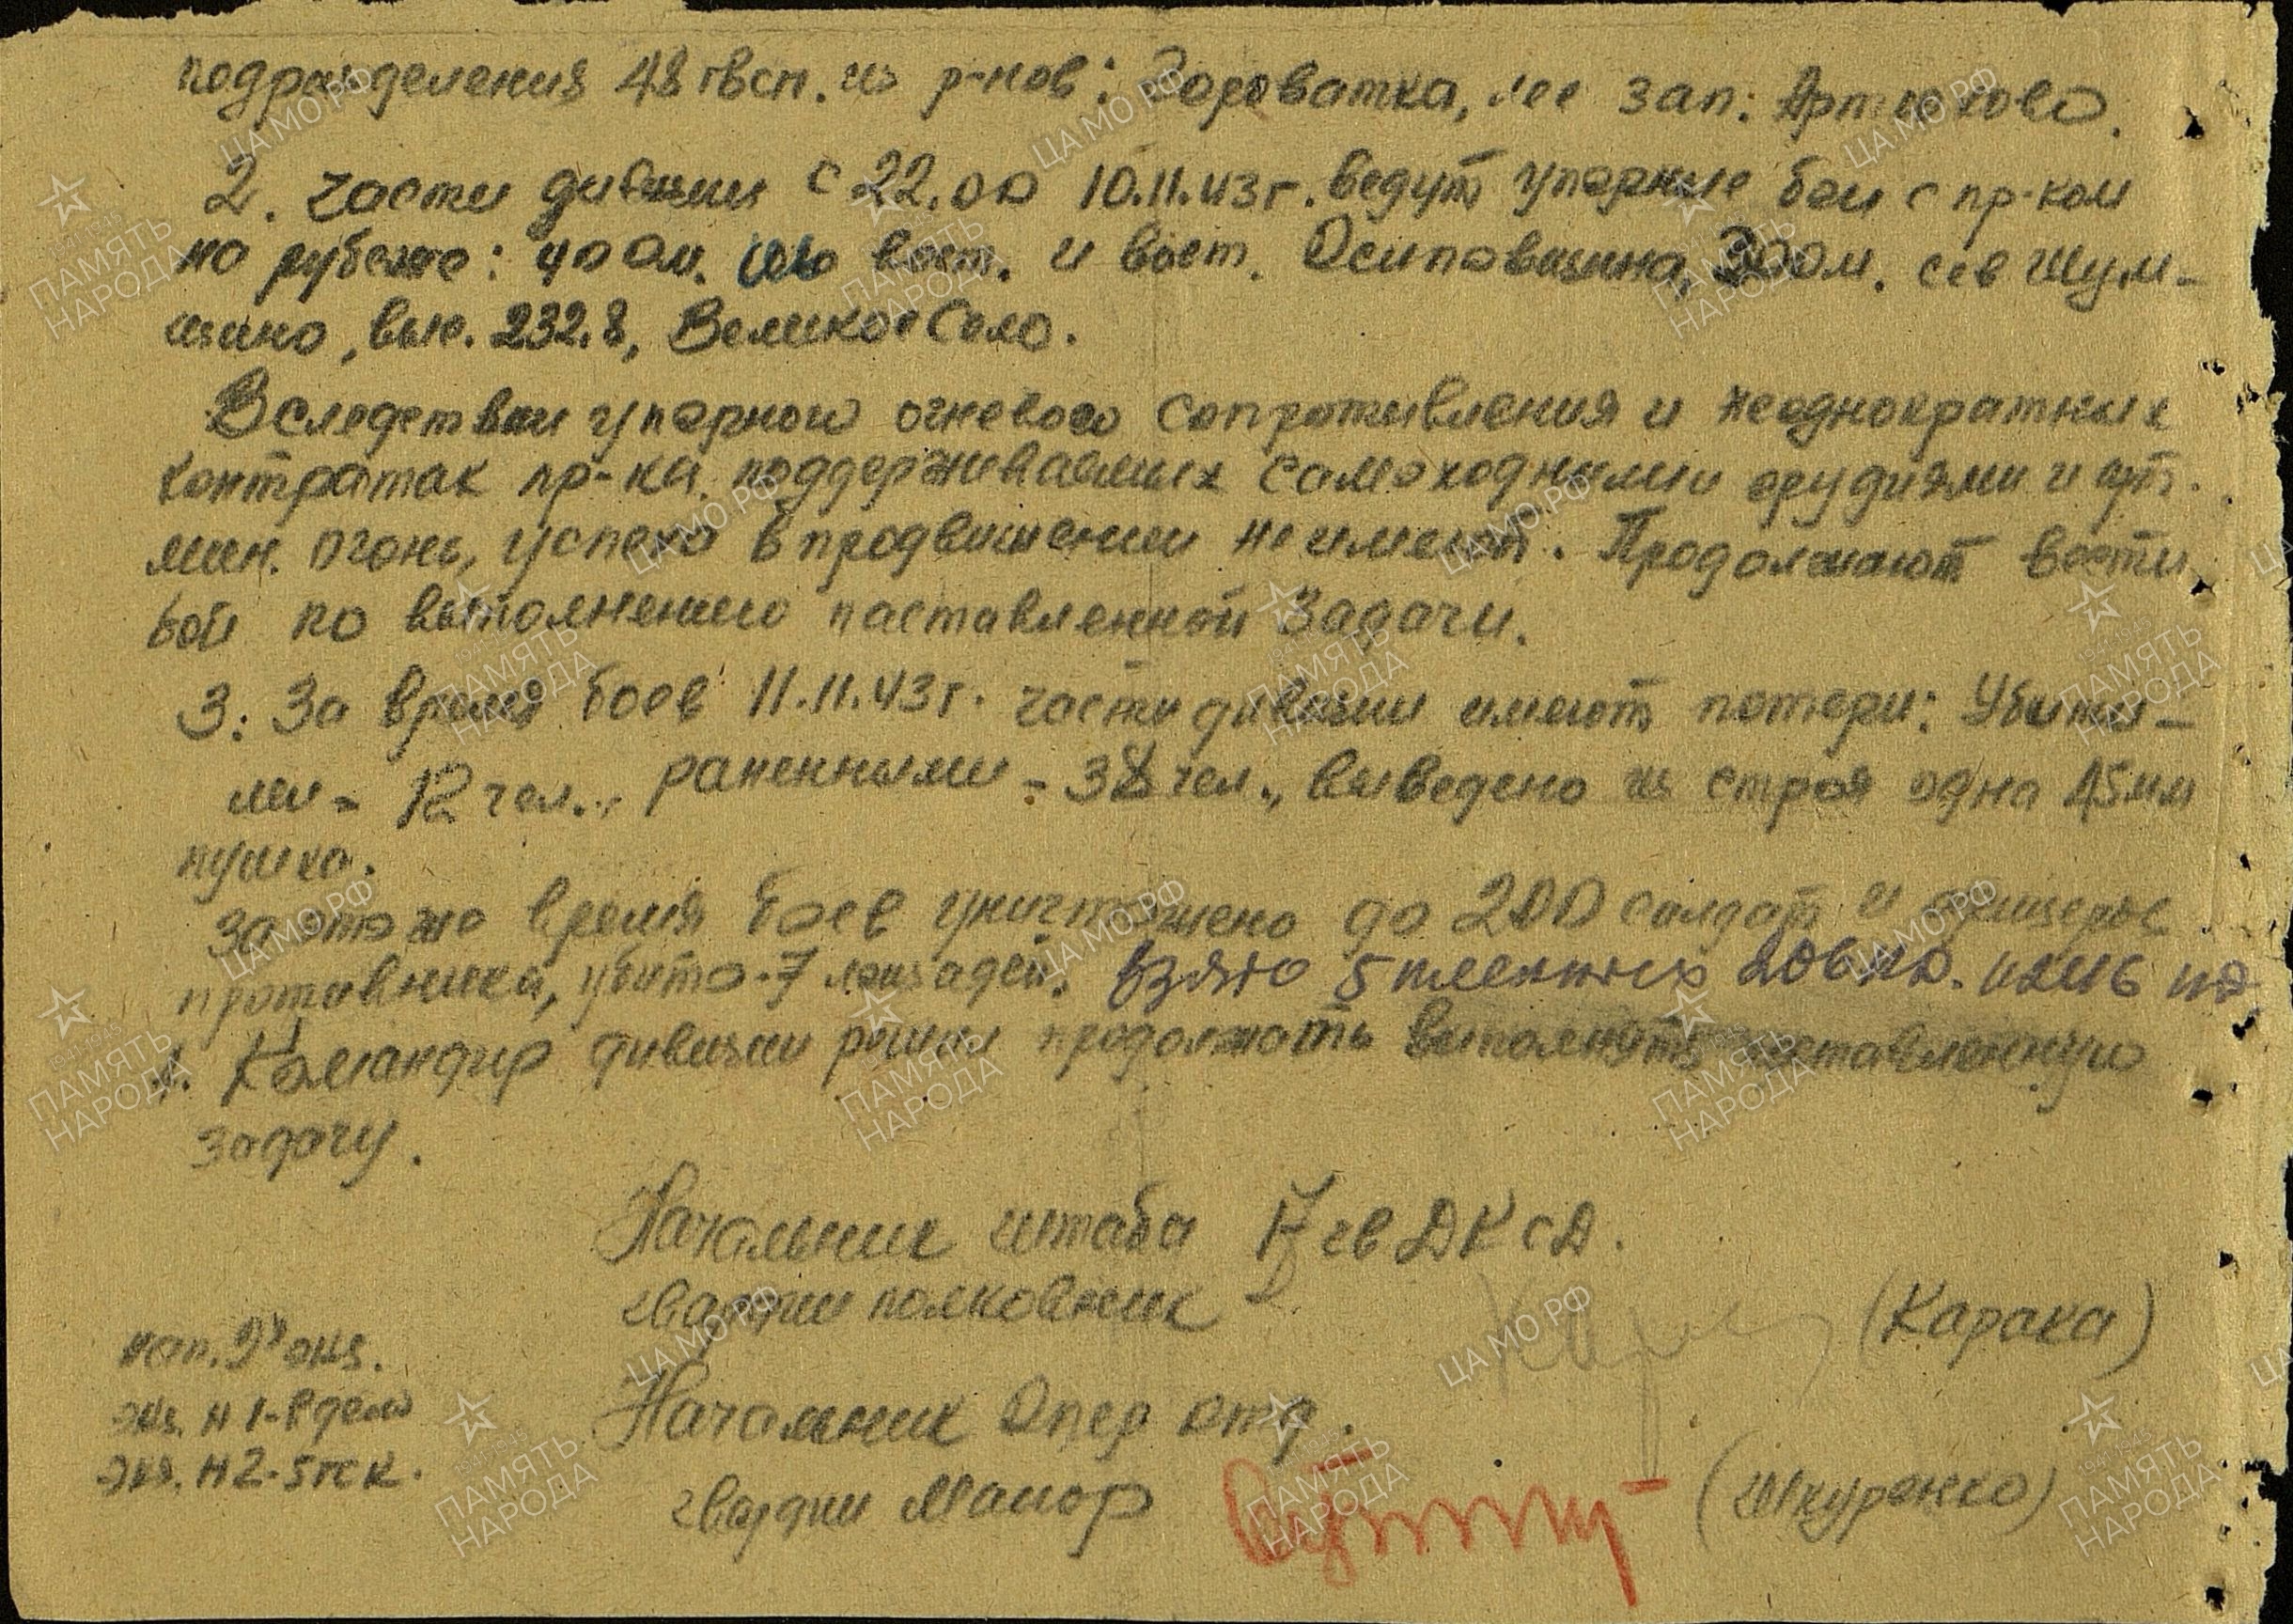 подразделения 48 гвсп. из р-нов: Зароватка, лес зап. Артюхово.
2. Части дивизии с 22.00 10.11.43г. ведут упорные бои с пр-ком
на рубеже: 400м. вост. и вост. Осиповщина, 300м. сев Шум-
щино, выс. 232.8, Великое Село.
Вследствии упорного огневого сопротивления и неоднократных
контратак пр-ка, поддерживаемых самоходными орудиями и арт.
мин. огонь, успеха в продвижении не имеют. Продолжают вести
бой по выполнению поставленной задачи.
3. За время боев 11.11.43г. части дивизии имеют потери: Убиты-
ми - 12 чел., ранеными - 38 чел., выведено из строя одна 45мм
пушка.
За это же время боев уничтожено до 200 солдат и офицеров
противника, убито - 7 лошадей. Взято 5 пленных
4. Командир дивизии решил продолжать выполнять поставленную
задачу.
Начальник штаба 17 гв ДКСД.
гвардии полковник (Карака)
нап. 2х экз.
экз. N 1-В дело
экз. N 2-5 гск.
Начальник Опер отд.
гвардии Майор (Шкуренко)
ЦА МО РФ
ПАМЯТЬ НАРОДА
1941-1945